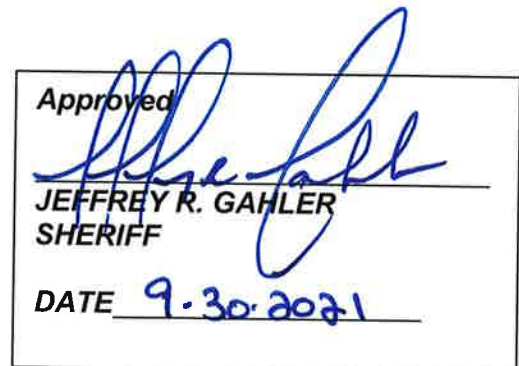 Approved
JEFFREY R. GAHLER
SHERIFF
DATE 9.30.2021